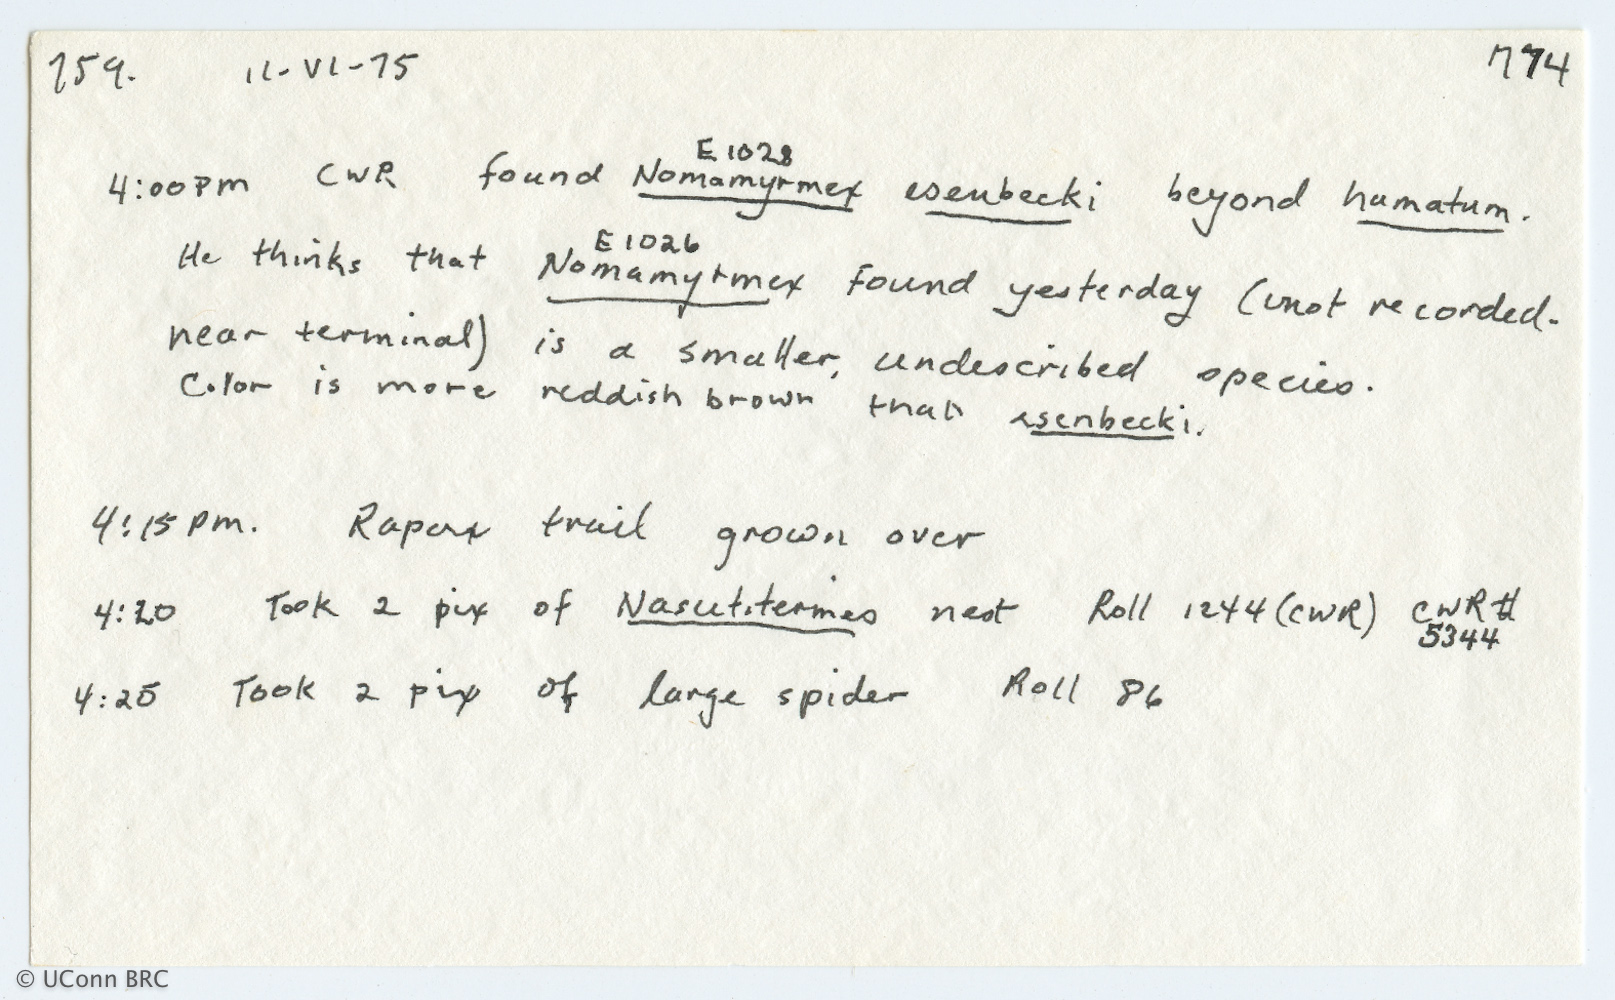 759. 11-VI-75 774
4:00 pm CWR found Nomamyrmex esenbecki beyond hamatum.
E1028
He thinks that Nomamyrmex found yesterday (not recorded-
E1026
near terminal) is a smaller, undescribed species.
Color is more reddish brown than esenbecki.
4:15 pm. trail grown over
4:20 Took 2 pix of Nasutitermes nest Roll 1244 (CWR) CWR #
5344
4:25 Took 2 pix of large spider Roll 86
© UConn BRC